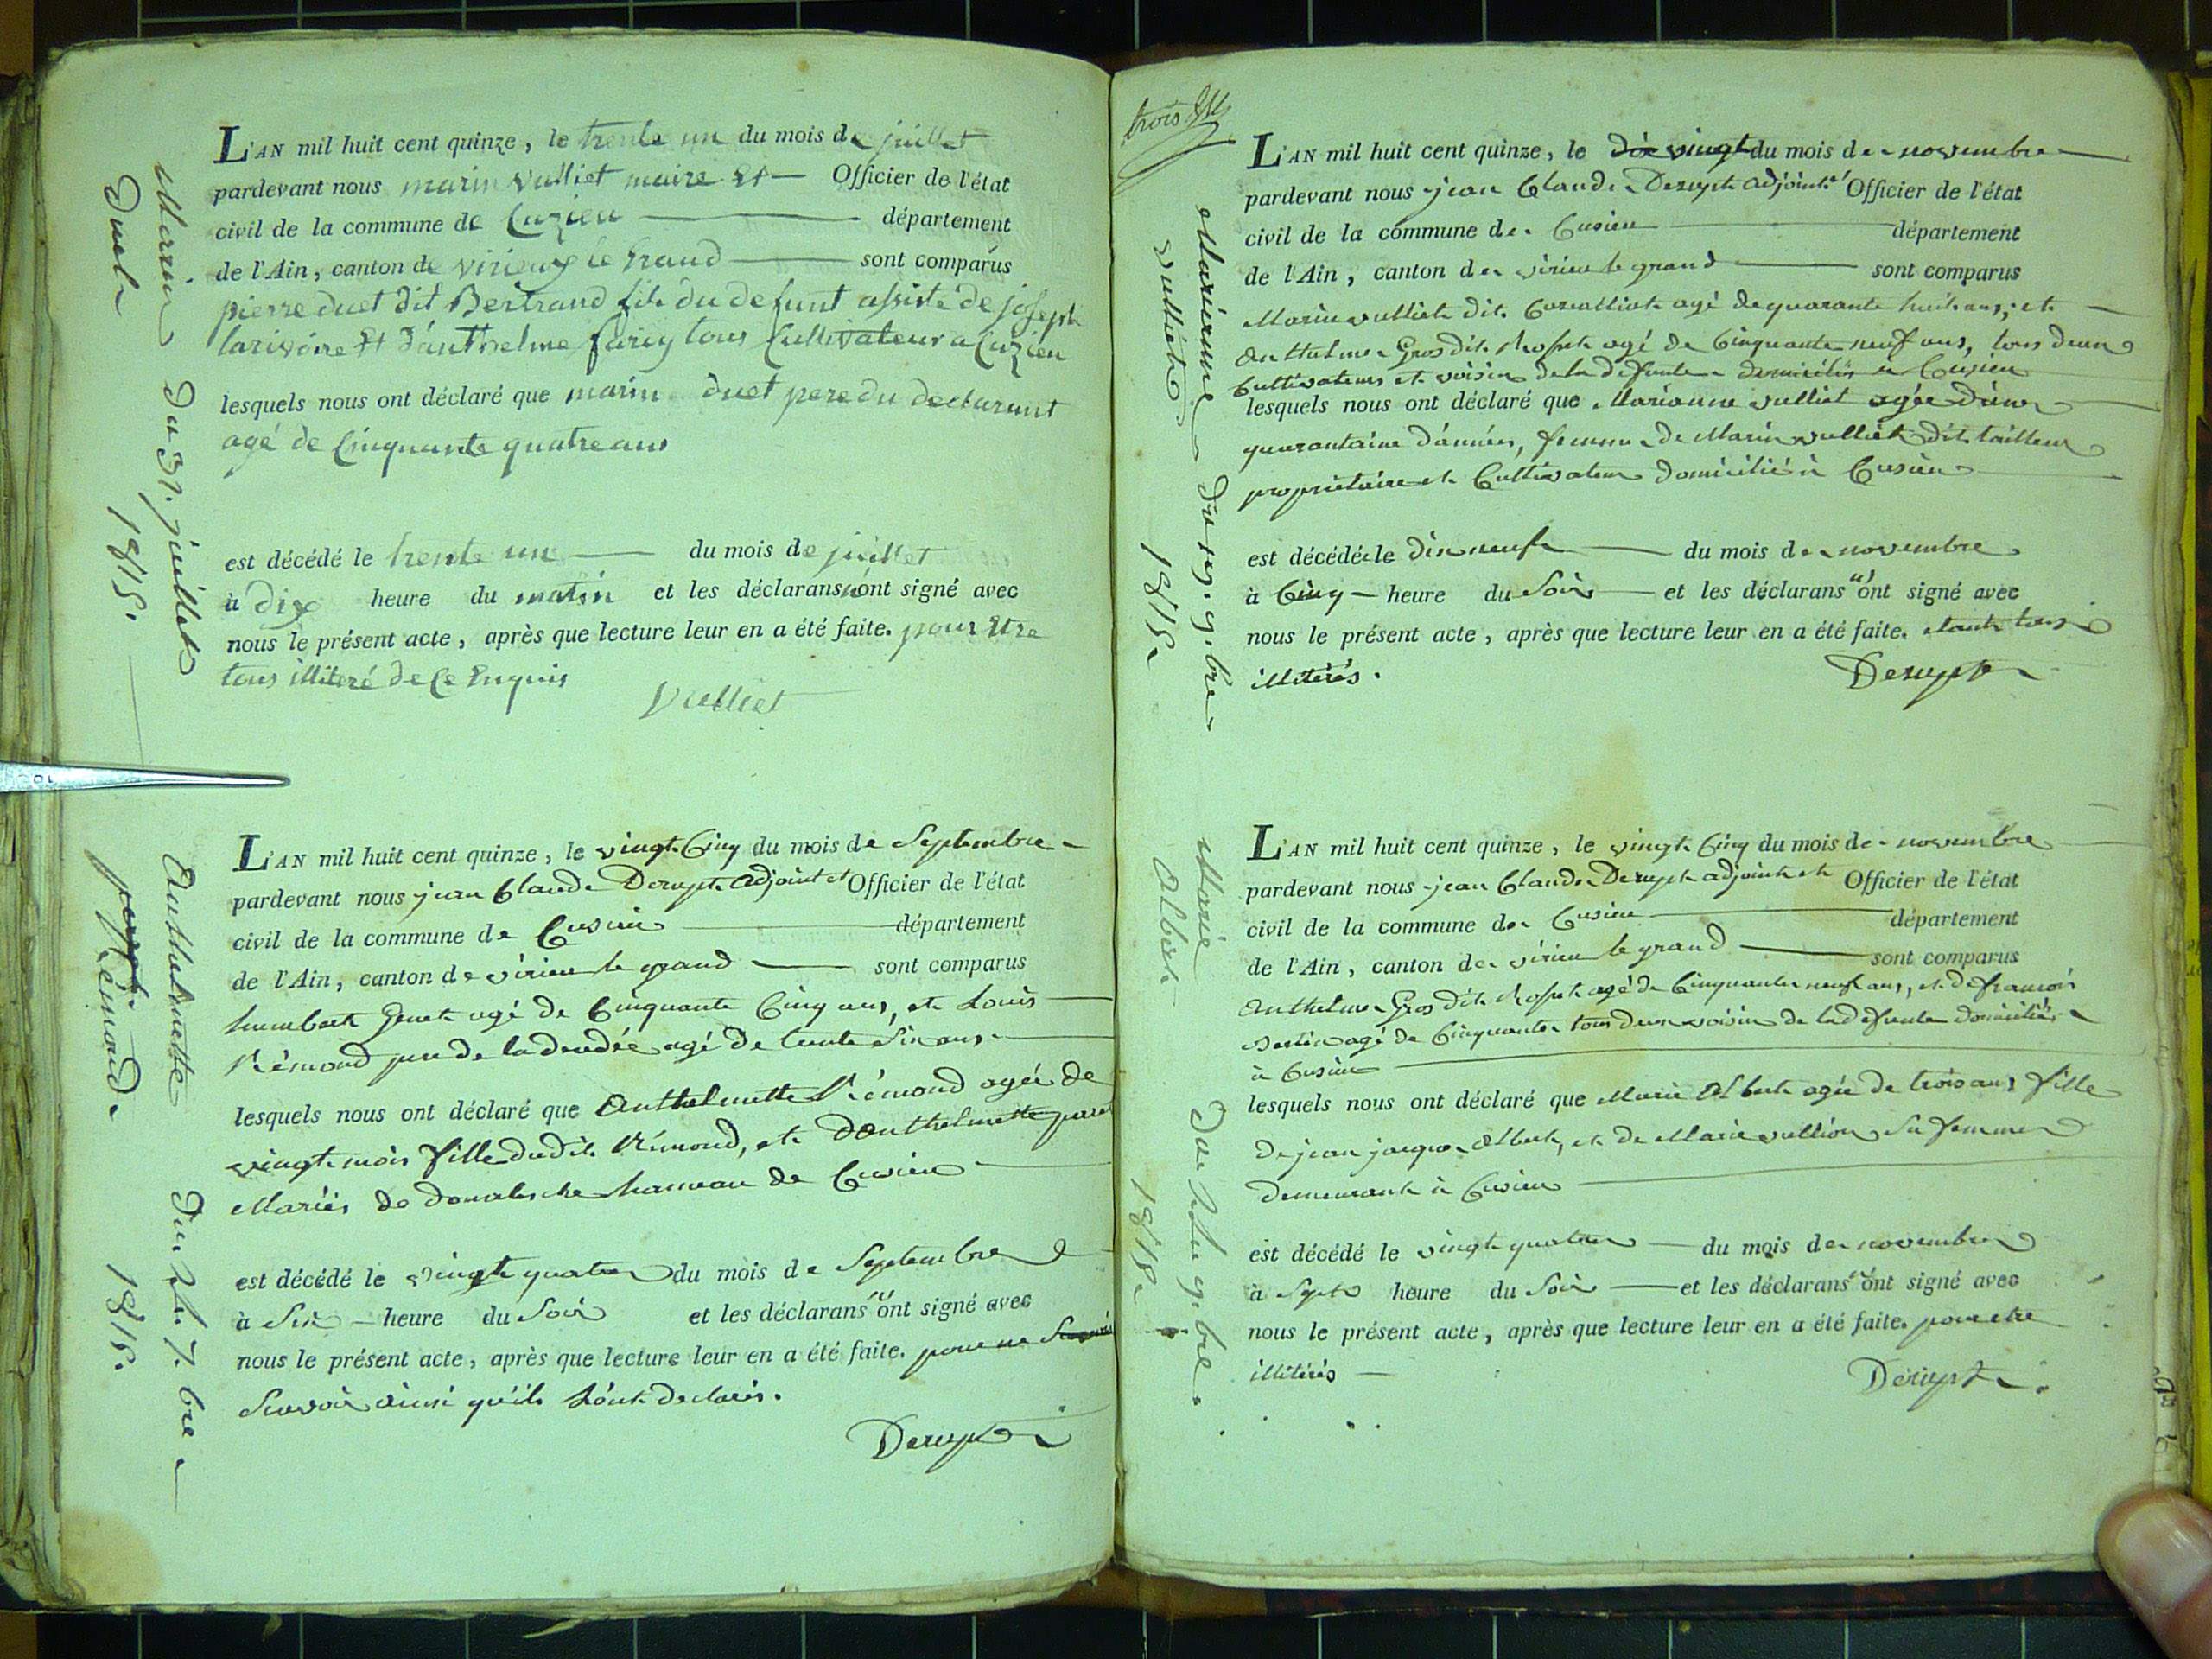 Marin Duet
Du 31. juillet 1815.
L'AN mil huit cent quinze, le trente un du mois de juillet
pardevant nous marin vulliet maire Et — Officier de l'état
civil de la commune de Cuzieu — département
de l'Ain, canton de virieux le Grand — sont comparus
pierre duet dit Bertrand fils du defunt assisté de joseph
larivoire Et d'anthelme tous Cultivateur a Cuzieu
lesquels nous ont déclaré que marin duet pere du declarant
agé de Cinquante quatre ans
est décédé le trente un — du mois de juillet
à dix heure du matin et les déclarans n'ont signé avec
nous le présent acte, après que lecture leur en a été faite. pour Etre
tous illiteré de Ce Enquis
Vulliet
Anthelmette Rémond
Du 25. 7.bre 1815.
L'AN mil huit cent quinze, le vingt Cinq du mois de Septembre
pardevant nous jean Claude Derupt adjoint et Officier de l'état
civil de la commune de Cusieu — département
de l'Ain, canton de virieu le grand — sont comparus
humbert Genet agé de Cinquante Cinq ans, et Louis
Rémond pere de la decedée agé de trente Six ans
lesquels nous ont déclaré que Anthelmette Rémond agée de
vingt mois fille dudit Rémond, et D'anthelmette
Mariés de hameau de Cusieu
est décédé le vingt quatre du mois de Septembre
à Six — heure du Soir et les déclarans n'ont signé avec
nous le présent acte, après que lecture leur en a été faite. pour ne
Scavoir ainsi qu'ils l'ont declarés.
Derupt
trois
Marianne vulliet
Du 19. 9.bre 1815.
L'AN mil huit cent quinze, le dix vingt du mois de novembre
pardevant nous jean Claude Derupt adjoint et Officier de l'état
civil de la commune de Cusieu — département
de l'Ain, canton de virieu le grand — sont comparus
Marin vulliet dit agé de quarante huit ans, et
Anthelme Gros dit agé de Cinquante neuf ans, tous deux
Cultivateurs et voisins de la defunte domiciliés a Cusieu
lesquels nous ont déclaré que Marianne vulliet agée d'une
quarantaine d'années, femme de Marin vulliet dit tailleur
propriétaire et Cultivateur domicilié à Cusieu
est décédée le dix neuf — du mois de novembre
à Cinq — heure du Soir — et les déclarans n'ont signé avec
nous le présent acte, après que lecture leur en a été faite. etant tous
illitérés.
Derupt
Marie Albert
Du 25 9.bre. 1815.
L'AN mil huit cent quinze, le vingt Cinq du mois de novembre
pardevant nous jean Claude Derupt adjoint et Officier de l'état
civil de la commune de Cusieu — département
de l'Ain, canton de virieu le grand — sont comparus
Anthelme Gros dit agé de Cinquante neuf ans, et de francois
agé de Cinquante tous deux voisins de la defunte domiciliés
à Cusieu
lesquels nous ont déclaré que Marie Albert agée de trois ans fille
de jean jacques Albert, et de Marie Sa femme
demeurant à Cusieu
est décédé le vingt quatre — du mois de novembre
à Sept heure du Soir — et les déclarans n'ont signé avec
nous le présent acte, après que lecture leur en a été faite. pour etre
illitérés —
Derupt